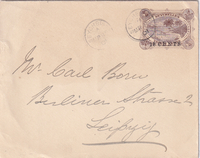 Mr Carl Born
Berliner Strasse 2
Leipzig
CENTS